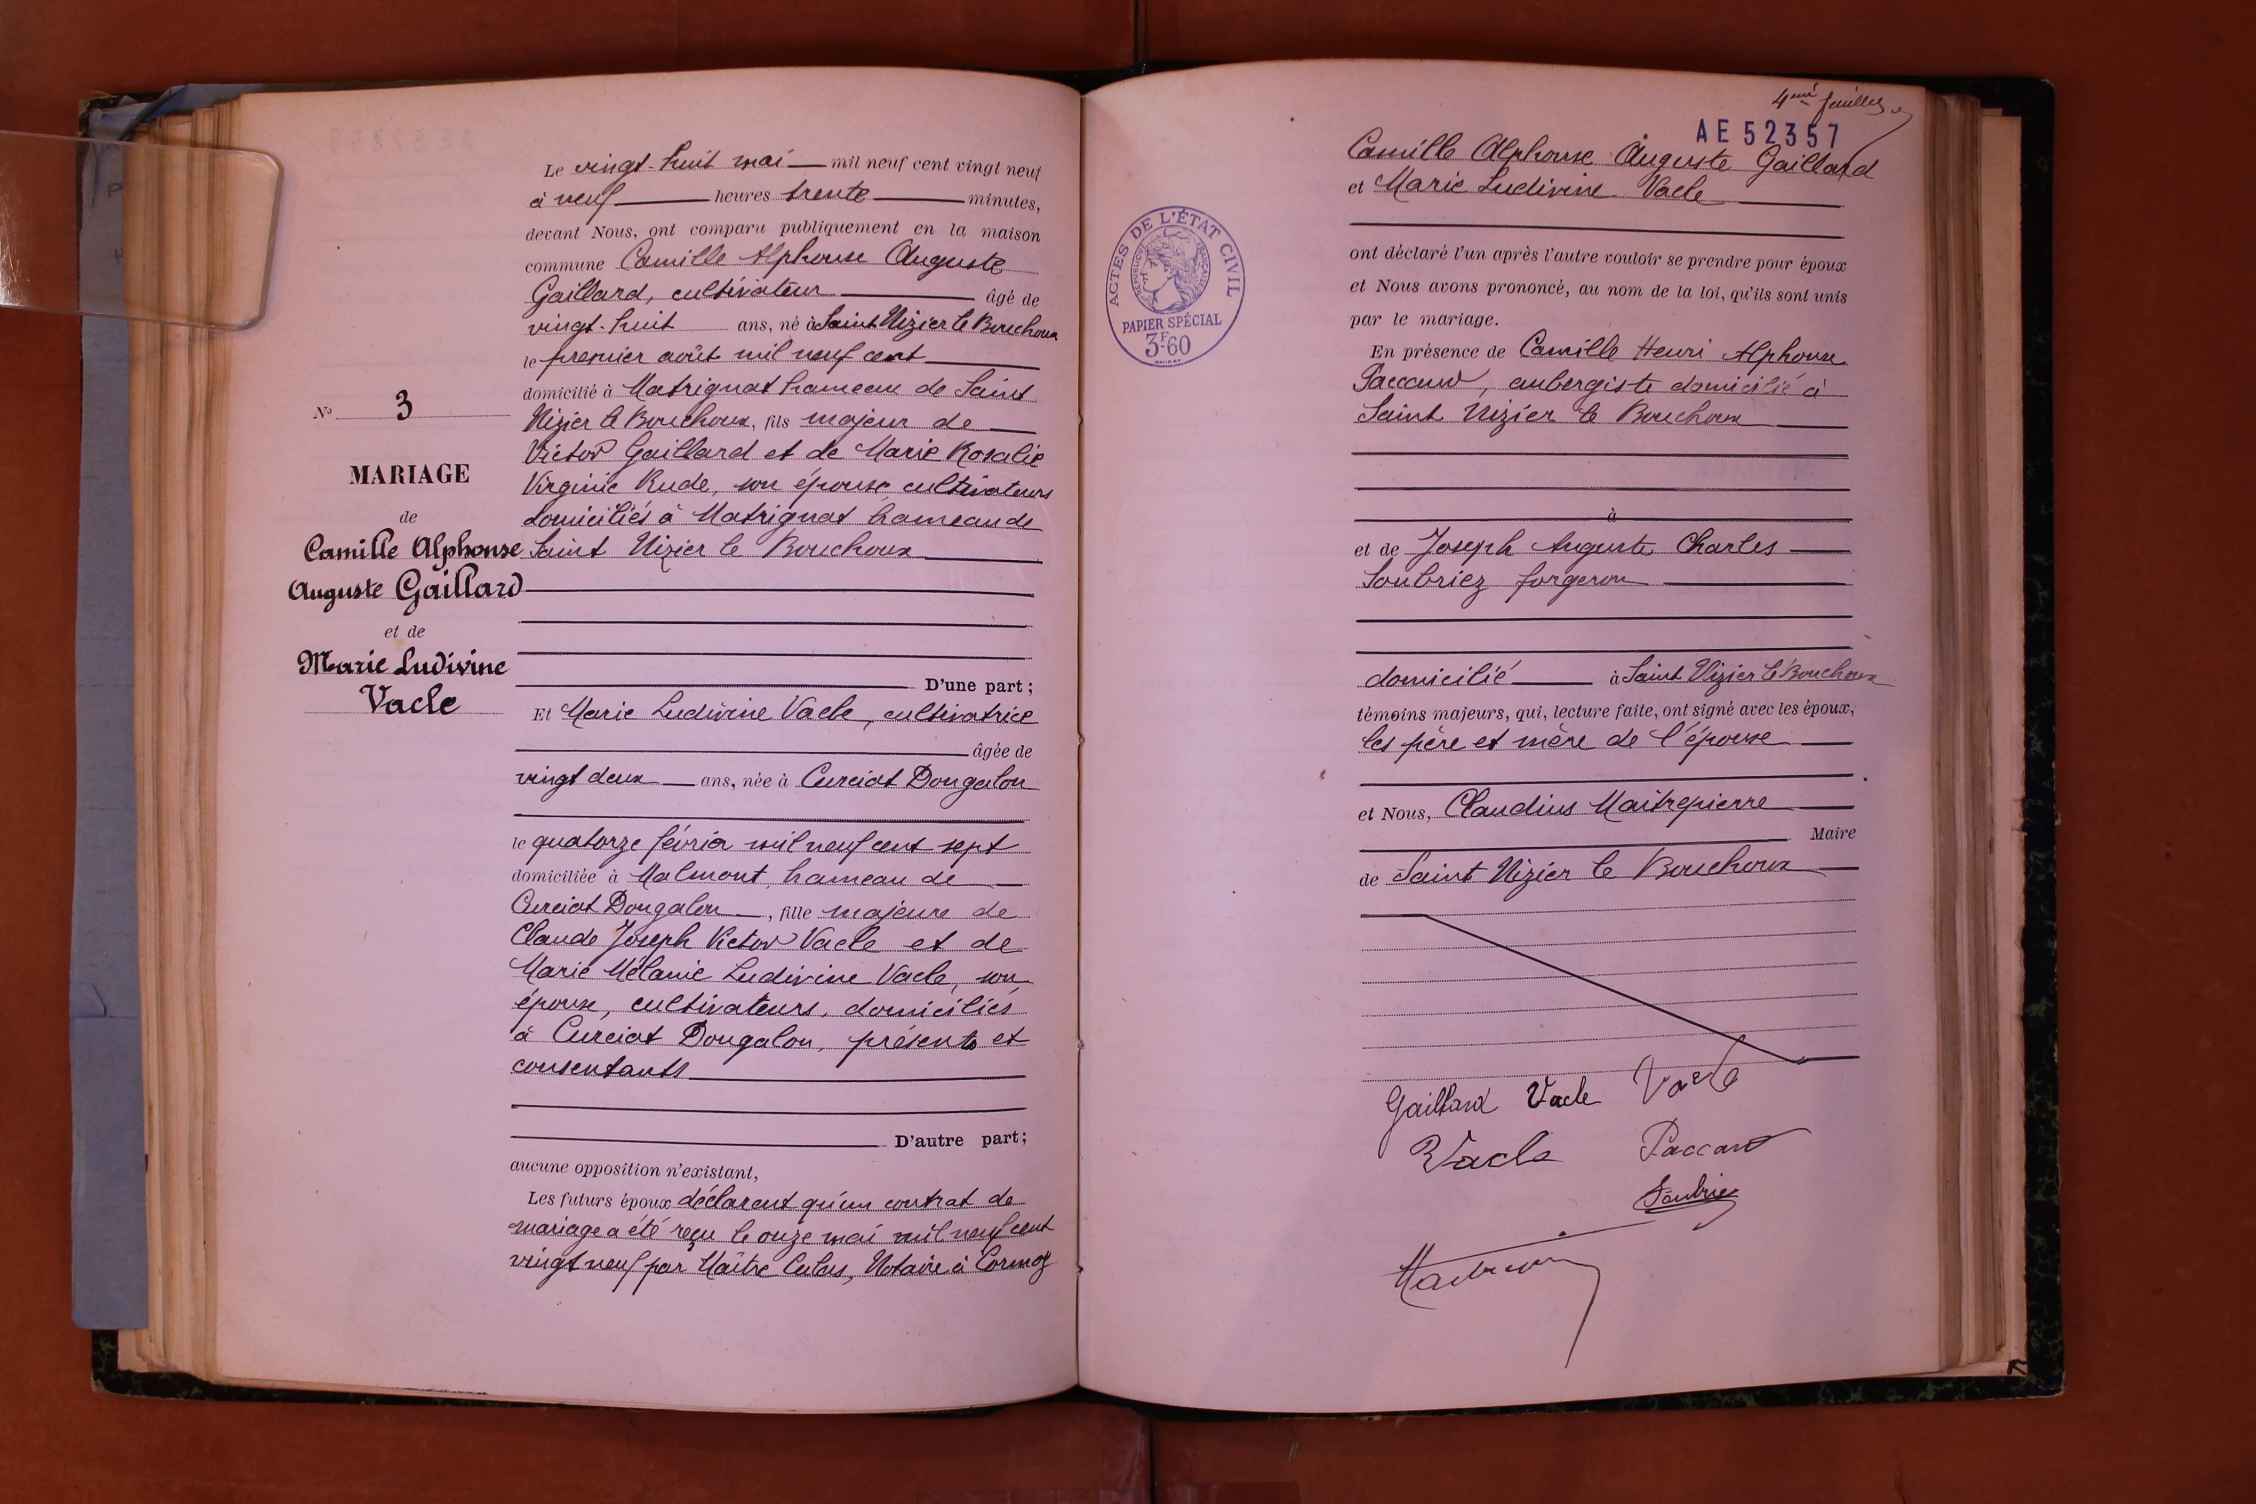 N° 3
MARIAGE
de
Camille Alphonse
Auguste Gaillard
et de
Marie Ludivine
Vacle
Le vingt-huit mai mil neuf cent vingt neuf
à neuf heures trente minutes,
devant Nous, ont comparu publiquement en la maison
commune Camille Alphonse Auguste
Gaillard, cultivateur âgé de
vingt-huit ans, né à Saint Nizier le Bouchoux
le premier août mil neuf cent
domicilié à Matrignat hameau de Saint
Nizier le Bouchoux, fils majeur de
Victor Gaillard et de Marie Rosalie
Virginie Rude, son épouse cultivateurs
domiciliés à Matrignat hameau de
Saint Nizier le Bouchoux
D'une part;
Et Marie Ludivine Vacle, cultivatrice
âgée de
vingt deux ans, née à Curciat Dongalon
le quatorze février mil neuf cent sept
domiciliée à Malmont, hameau de
Curciat Dongalon, fille majeure de
Claude Joseph Victor Vacle et de
Marie Mélanie Ludivine Vacle, son
épouse, cultivateurs, domiciliés
à Curciat Dongalon, présents et
consentants
D'autre part;
aucune opposition n'existant,
Les futurs époux déclarent qu'un contrat de
mariage a été reçu le onze mai mil neuf cent
vingt neuf par Maître, Notaire à Cormoz
4ème feuillet
AE 52357
Camille Alphonse Auguste Gaillard
et Marie Ludivine Vacle
ACTES DE L'ÉTAT CIVIL
RÉPUBLIQUE FRANÇAISE
PAPIER SPÉCIAL
3F60
ont déclaré l'un après l'autre vouloir se prendre pour époux
et Nous avons prononcé, au nom de la loi, qu'ils sont unis
par le mariage.
En présence de Camille Henri Alphonse
Paccard, aubergiste domicilié à
Saint Nizier le Bouchoux
à
et de Joseph Auguste Charles
Soubriez forgeron
domicilié à Saint Nizier le Bouchoux
témoins majeurs, qui, lecture faite, ont signé avec les époux,
les père et mère de l'épouse
et Nous, Claudius Maîtrepierre
Maire
de Saint Nizier le Bouchoux
Gaillard Vacle Vacle
Vacle Paccard
Soubriez